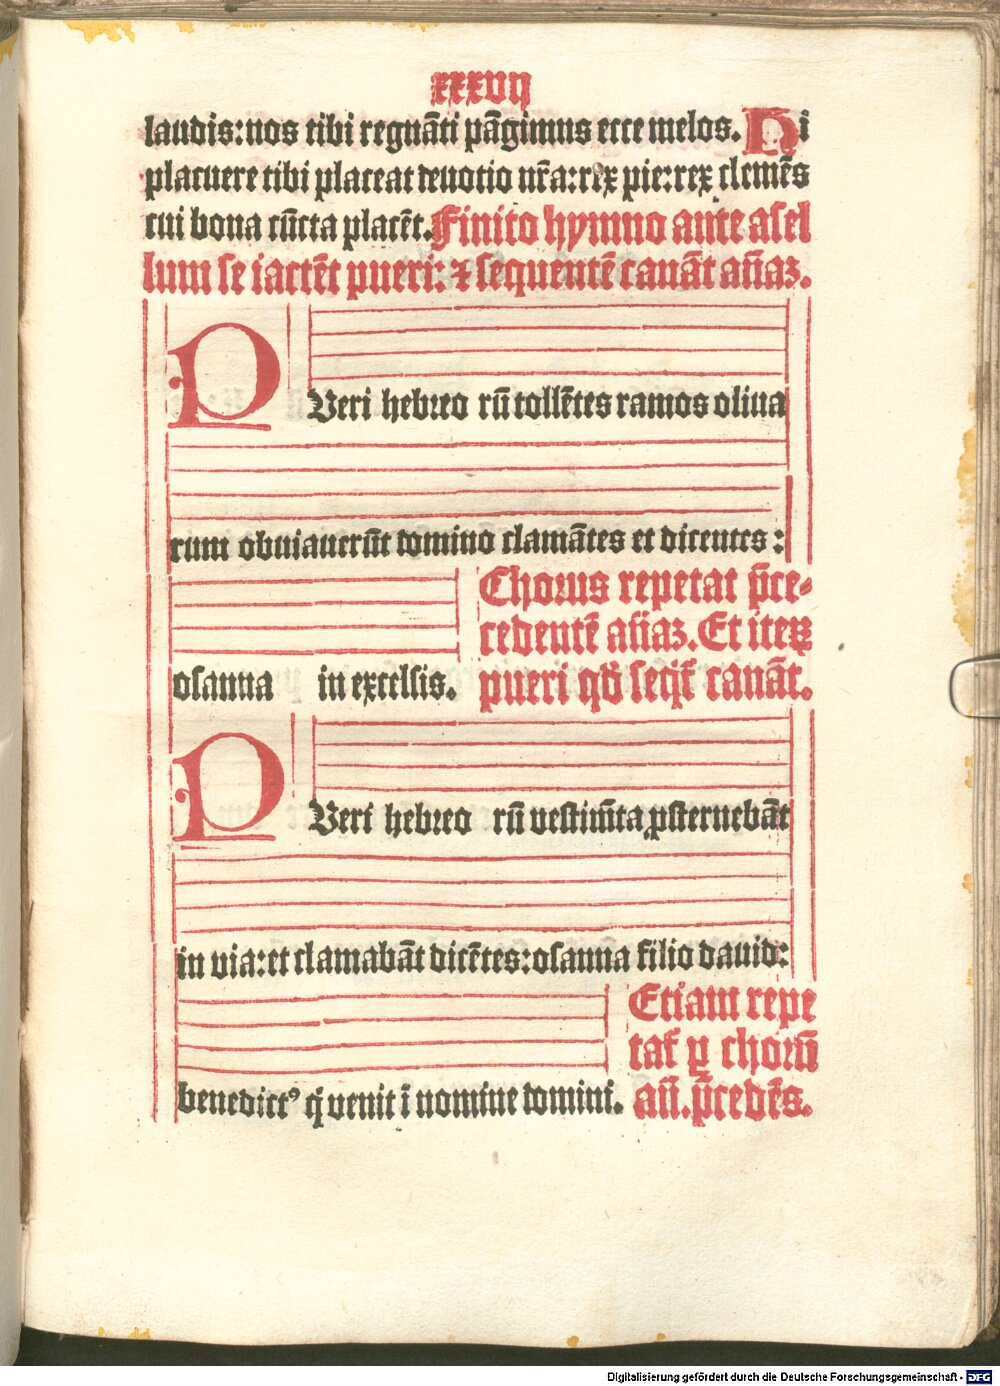 xxxvij
laudis: nos tibi regnāti pāgimus ecce melos. Hi
placuere tibi placeat deuotio nr̄a: rex pie: rex clemēs
cui bona cūcta placēt. Finito hymno ante asel
lum se iactēt pueri: ⁊ sequentē canāt an̄aꝫ.
PVeri hebreo rū tollētes ramos oliua
rum obuiauerūt domino clamātes et dicentes:
osanna in excelsis.
Chorus repetat p̄ce-
cedentē an̄aꝫ. Et iteꝝ
pueri qd̄ seqt̄ canāt.
PVeri hebreo rū vestimēta ꝓsternebāt
in via: et clamabāt dicētes: osanna filio dauid:
benedictꝰ q̄ venit ī nomine domini.
Etiam repe
tat̄ ꝑ chorū
an̄. p̄cedēs.
Digitalisierung gefördert durch die Deutsche Forschungsgemeinschaft - DFG